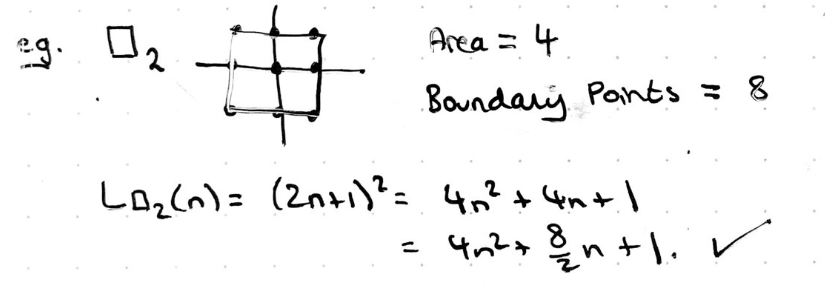 eg. □₂
Area = 4
Boundary Points = 8
L□₂(n) = (2n+1)² = 4n² + 4n + 1
= 4n² + 8/2 n + 1. ✓